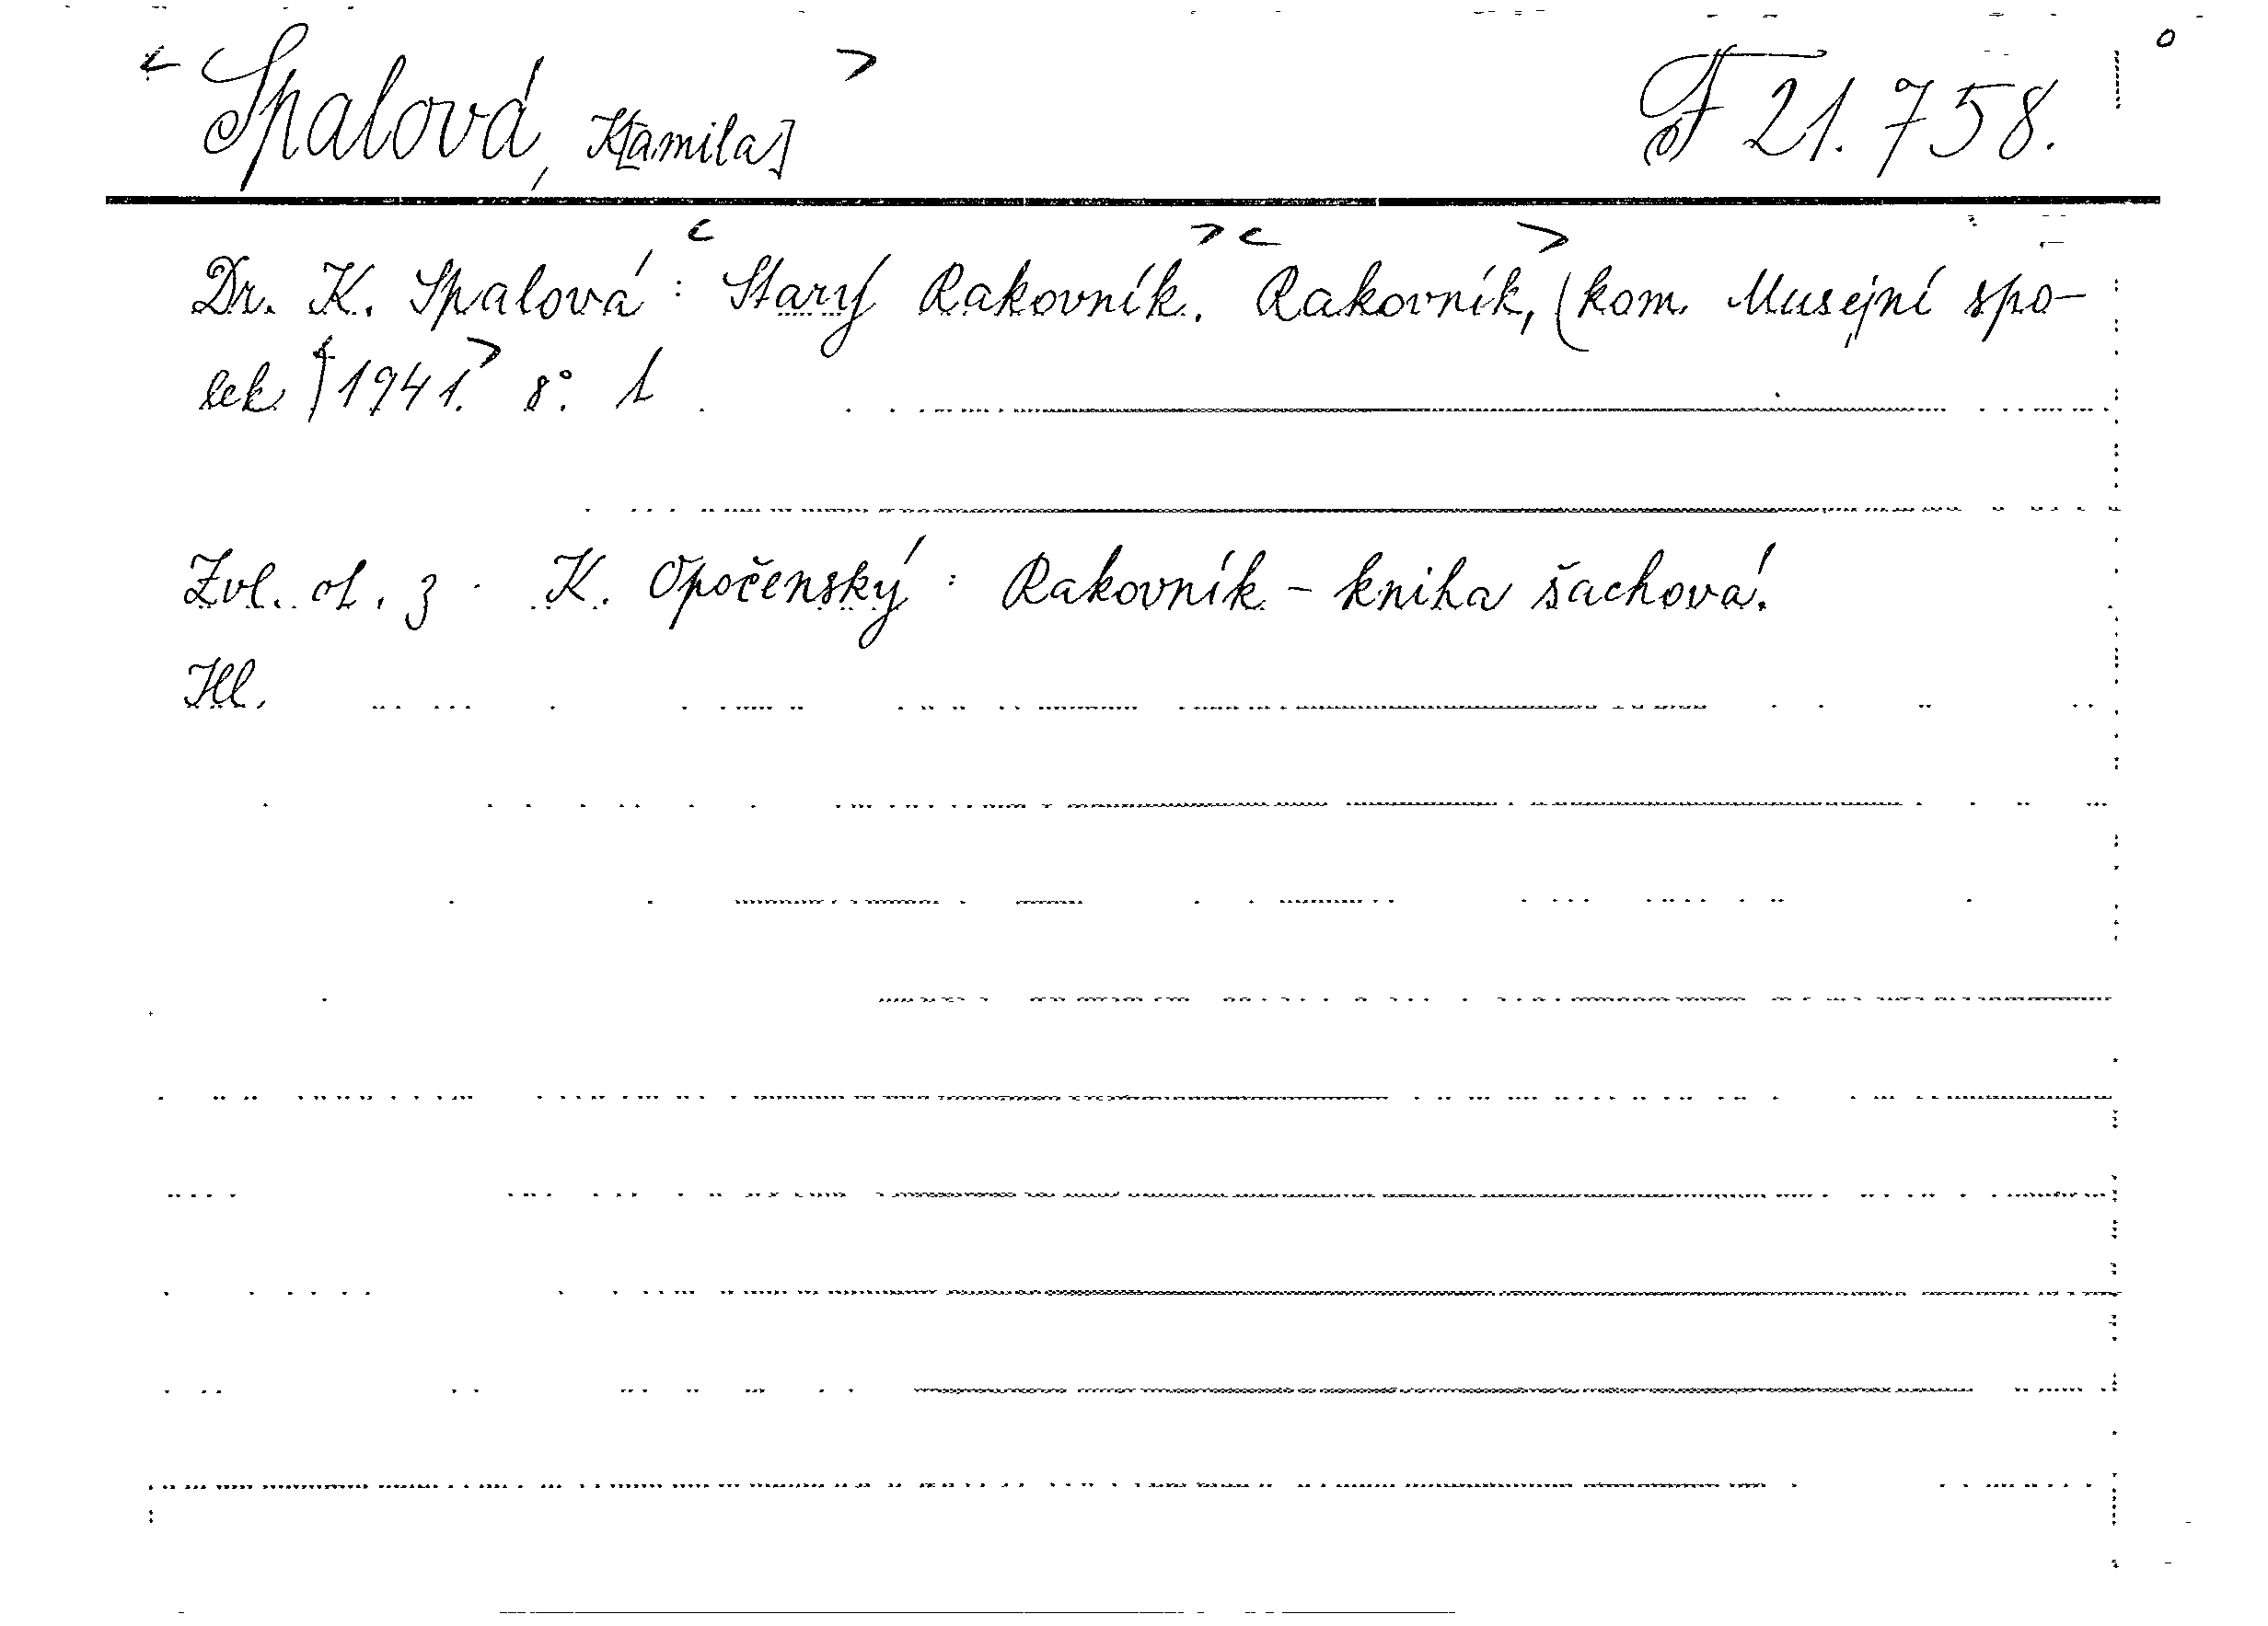 < Spalová, K[amila] > F 21.758.
Dr. K. Spalová: <Starý Rakovník.> <Rakovník,> (kom. Musejní spo-
lek) <1941.> 8°. 1
Zvl. ot. z: K. Opočenský: Rakovník - kniha šachová.
Hl.